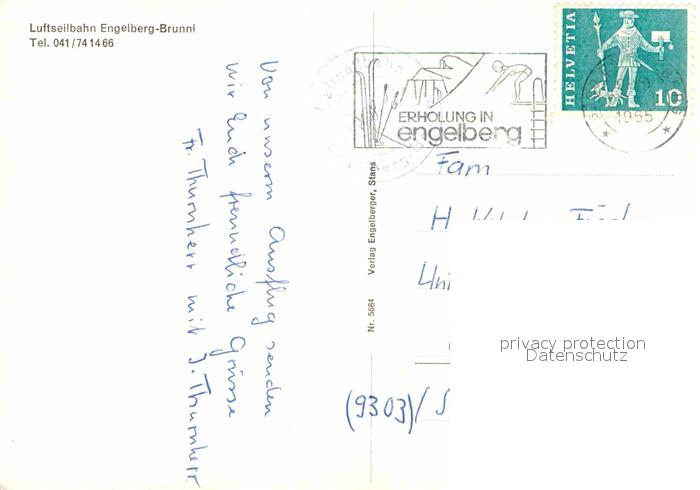 Luftseilbahn Engelberg-Brunni
Tel. 041/74 14 66
Von unserm Ausflug senden
wir Euch freundliche Grüsse
Fr. Thurnherr mit J. Thurnherr
Nr. 5684 Verlag Engelberger, Stans
ERHOLUNG IN
engelberg
HELVETIA
10
Fam
H
(9303)/S
privacy protection
Datenschutz